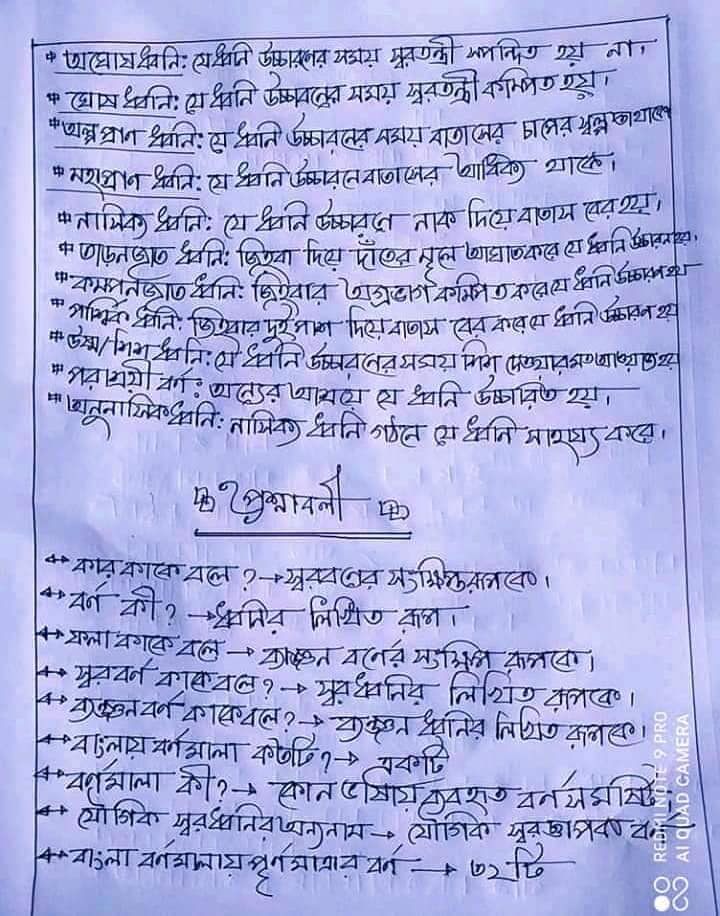 * অঘোষ ধ্বনি: যে ধ্বনি উচ্চারণের সময় স্বরতন্ত্রী স্পন্দিত হয় না।
* ঘোষ ধ্বনি: যে ধ্বনি উচ্চারনের সময় স্বরতন্ত্রী কম্পিত হয়।
* অল্প প্রাণ ধ্বনি: যে ধ্বনি উচ্চারনের সময় বাতাসের চাপের স্বল্পতা থাকে
* মহাপ্রাণ ধ্বনি: যে ধ্বনি উচ্চারনে বাতাসের আধিক্য থাকে।
* নাসিক্য ধ্বনি: যে ধ্বনি উচ্চারণে নাক দিয়ে বাতাস বের হয়।
* তাড়নজাত ধ্বনি: জিহবা দিয়ে দাঁতের মূলে আঘাত করে যে ধ্বনি উচ্চারন হয়।
* কম্পনজাত ধ্বনি: জিহবার অগ্রভাগ কম্পিত করে যে ধ্বনি উচ্চারণ হয়
* পার্শ্বিক ধ্বনি: জিহবার দুই পাশ দিয়ে বাতাস বের করে যে ধ্বনি উচ্চারণ হয়
* উষ্ম/শিশ ধ্বনি: যে ধ্বনি উচ্চরণের সময় শিশ দেওয়ার মত আওয়াজ হয়
* পরাশ্রয়ী বর্ণ: অন্যের আশ্রয়ে যে ধ্বনি উচ্চারিত হয়।
* অনুনাসিক ধ্বনি: নাসিক্য ধ্বনি গঠনে যে ধ্বনি সাহায্য করে।
প্রশ্নাবলী
↔ কার কাকে বলে? → স্বরবর্ণের সংক্ষিপ্তরূপকে।
↔ বর্ণ কী? → ধ্বনির লিখিত রূপ।
↔ ফলা কাকে বলে → ব্যঞ্জন বর্নের সংক্ষিপ্ত রূপকে।
↔ স্বরবর্ণ কাকে বলে? → স্বরধ্বনির লিখিত রূপকে।
↔ ব্যঞ্জন বর্ণ কাকে বলে? → ব্যঞ্জন ধ্বনির লিখিত রূপকে।
↔ বাংলায় বর্ণমালা কতটি? → একটি
↔ বর্ণমালা কী? → কোন ভাষায় ব্যবহৃত বর্নসমষ্টি
↔ যৌগিক স্বরধ্বনির অন্যনাম → যৌগিক স্বরজ্ঞাপক
↔ বাংলা বর্ণমালায় পূর্ণমাত্রার বর্ণ → ৩২ টি
REDMI NOTE 9 PRO
AI QUAD CAMERA